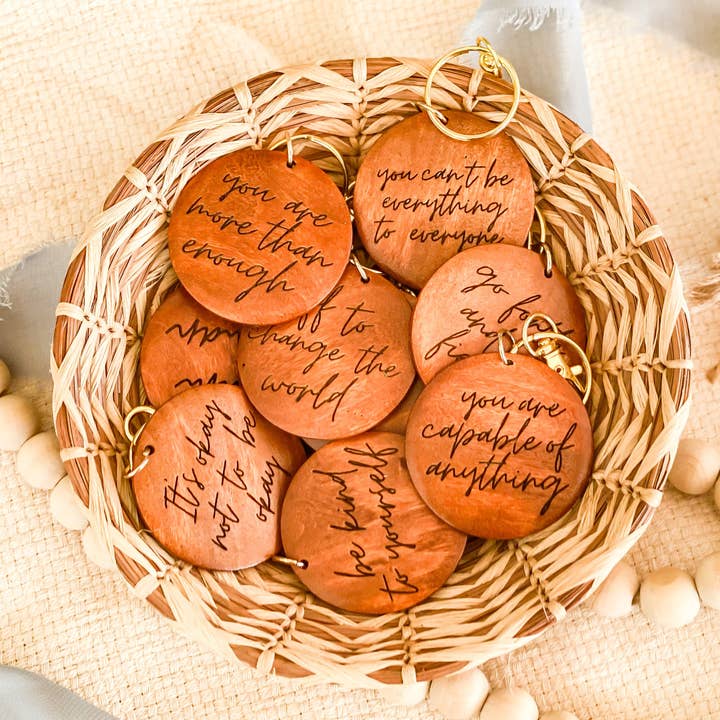 you are
more than
enough
you can't be
everything
to everyone
go for
an
off to
change the
world
you are
capable of
anything
It's okay
not to be
okay
be kind
to yourself